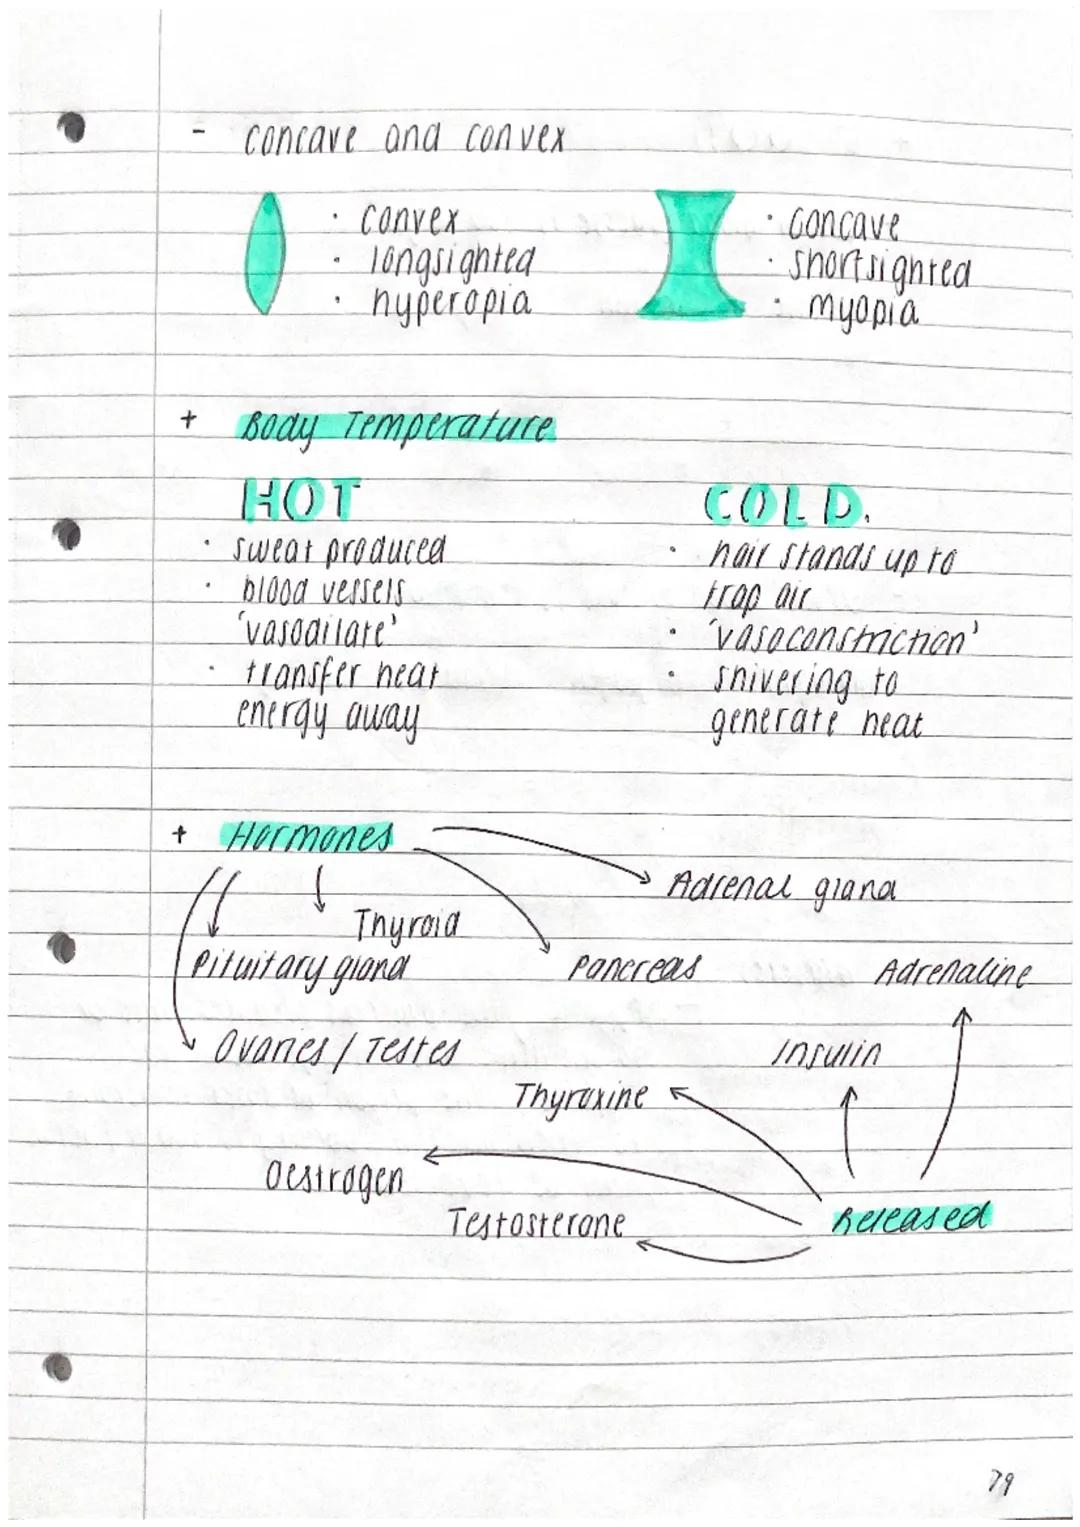 - concave and convex
· convex
· longsighted
· hyperopia
· concave
· shortsighted
· myopia
+ Body Temperature
HOT
· sweat produced
· blood vessels
'vasodilate'
· transfer heat
energy away
COLD.
· hair stands up to
trap air
· 'vasoconstriction'
· shivering to
generate heat
+ Hormones
Adrenal gland
Thyroid
Pituitary gland
Pancreas
Adrenaline
Ovaries / Testes
Insulin
Thyroxine
Oestrogen
Testosterone
Released
79